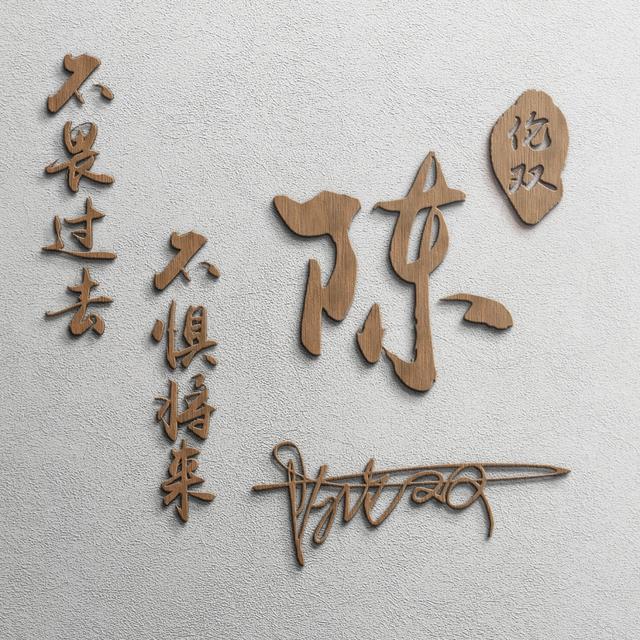 不畏过去
不惧将来
陈
伦双